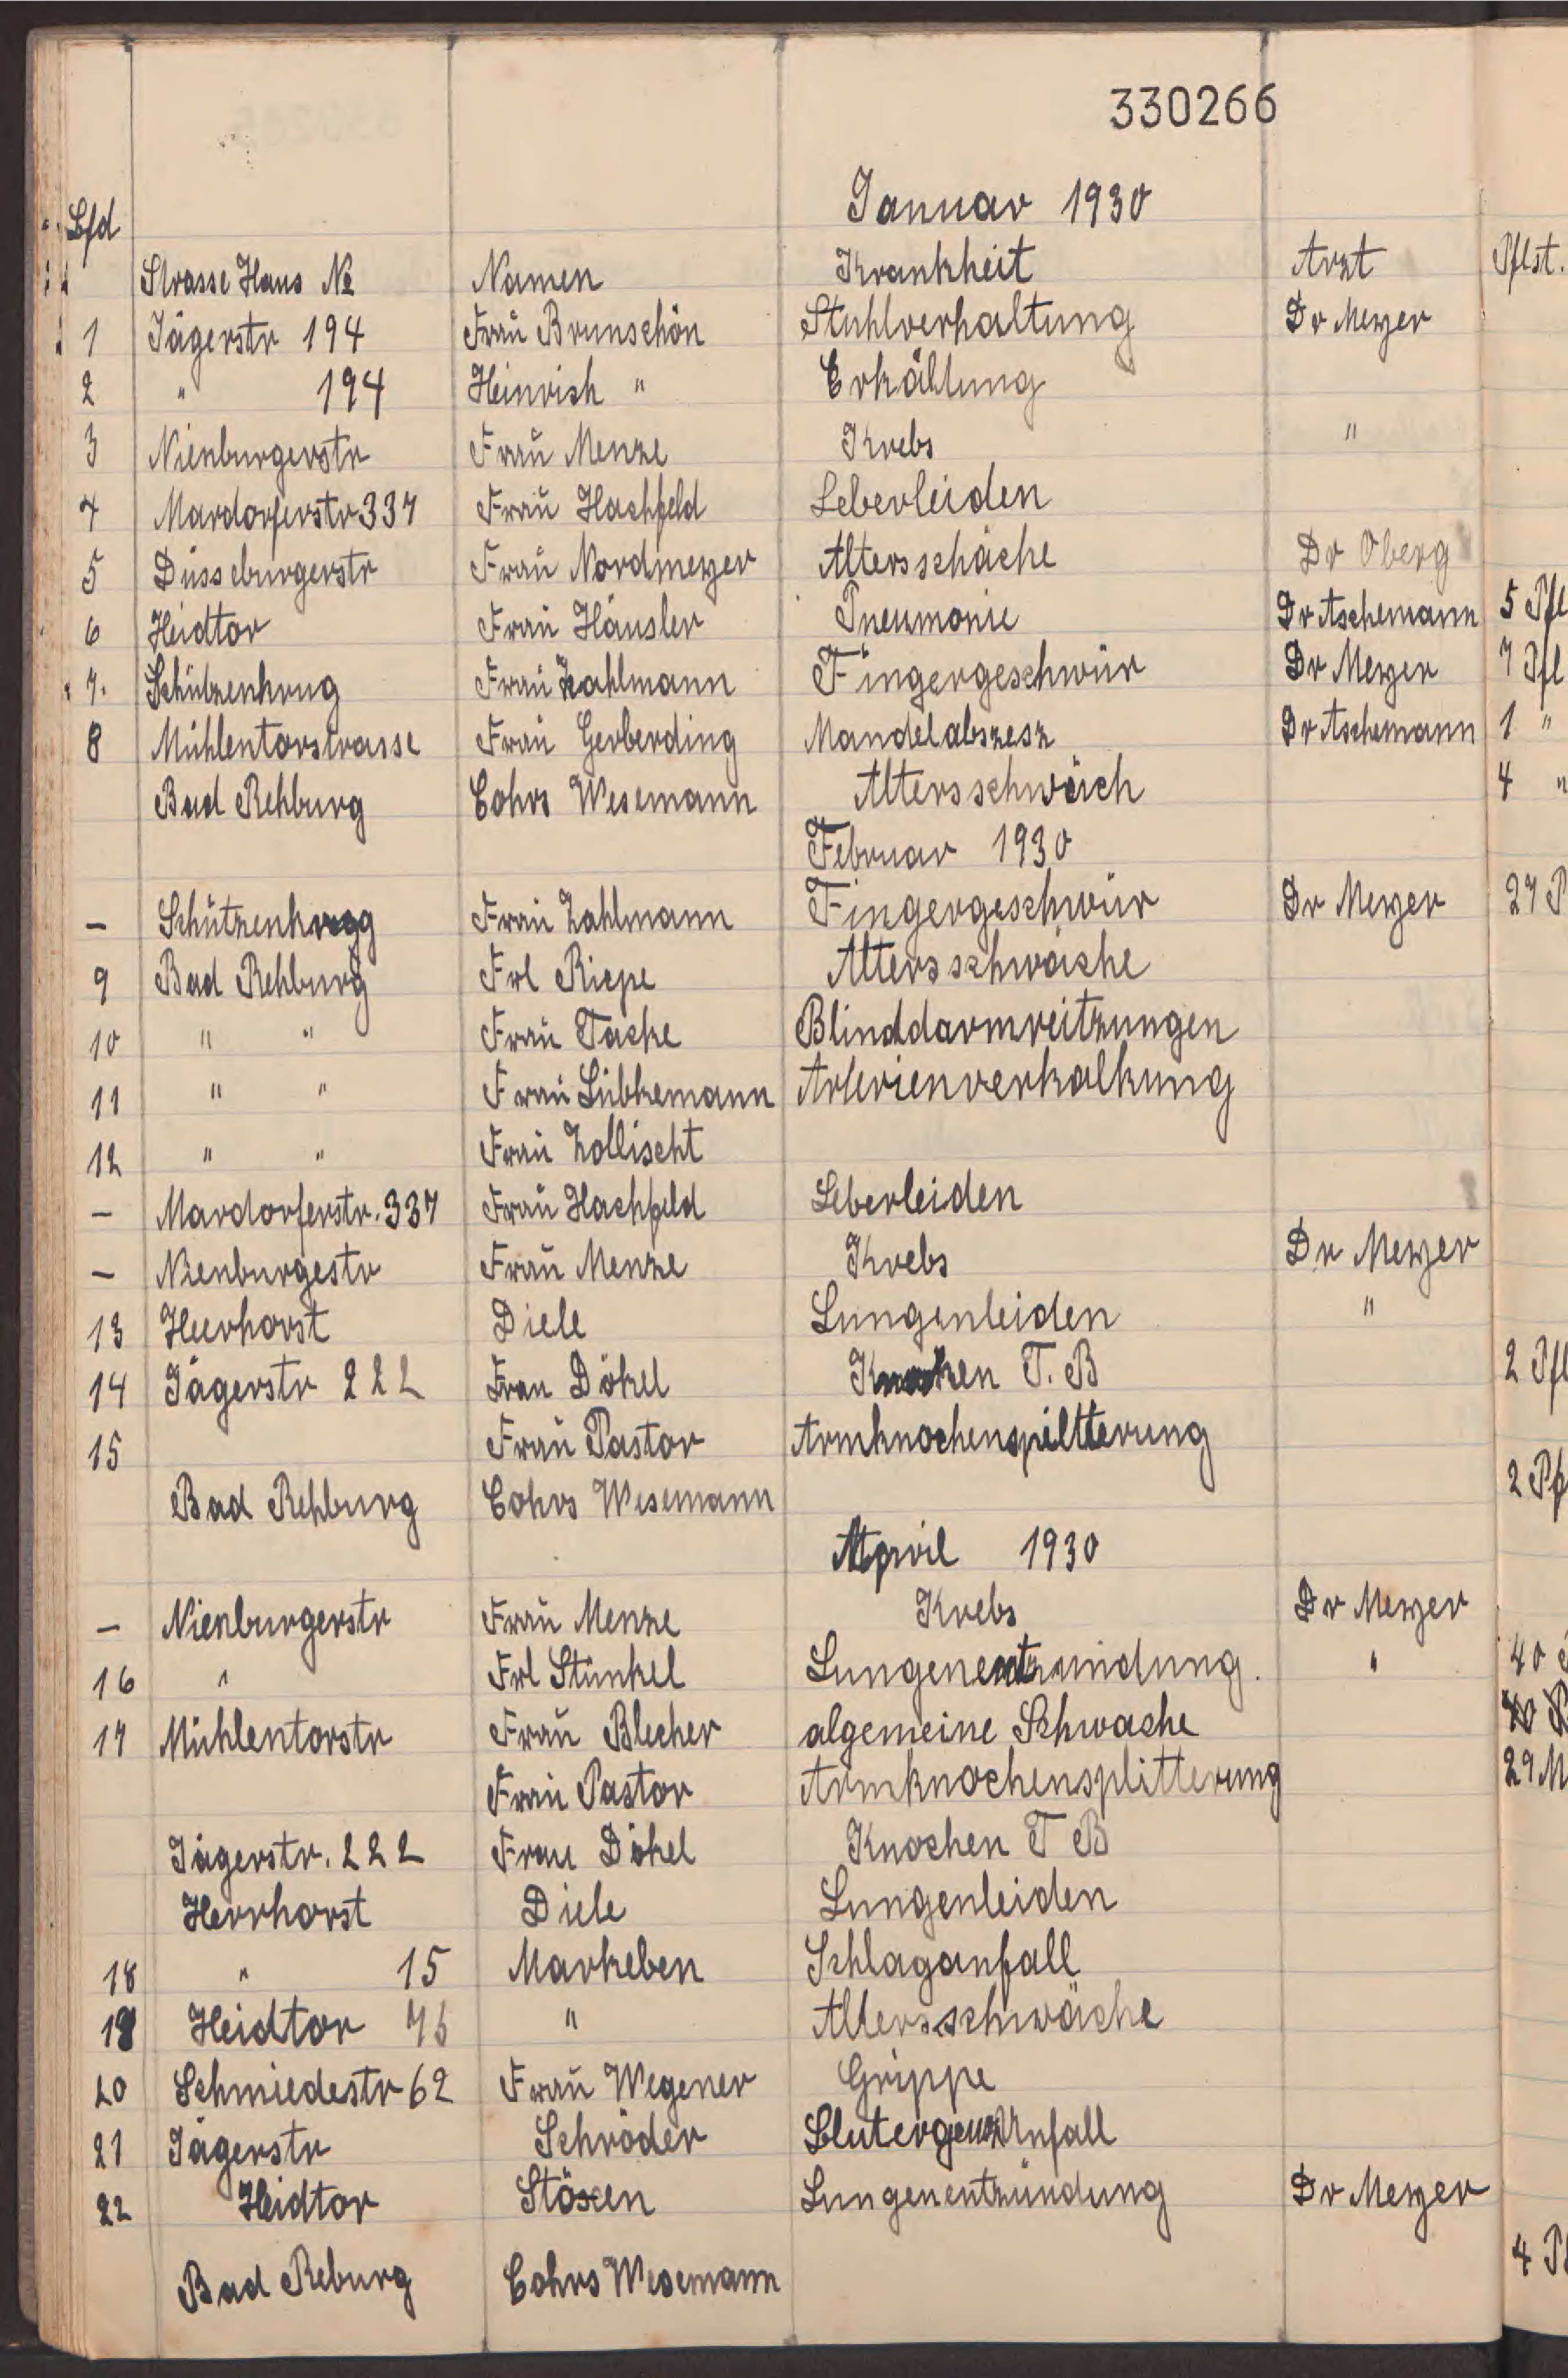 330266
Januar 1930
Lfd
Strasse Haus № Namen Krankheit Arzt Pflst.
1 Jägerstr 194 Frau Brunschön Stuhlverhaltung Dr Meyer
2 " 194 Heinrich " Erkältung
3 Nienburgerstr Frau Menze Krebs "
4 Mardorferstr 337 Frau Hachfeld Leberleiden
5 Düsseburgerstr Frau Nordmeyer Altersschäche Dr Oberg
6 Heidtor Frau Häusler Pneumonie Dr Aschemann 5 Pfl
7. Schützenkrug Frau Zahlmann Fingergeschwür Dr Meyer 7 Pfl
8 Mühlentorstrasse Frau Gerberding Mandelabszesz Dr Aschemann 1 "
Bad Rehburg Cohrs Wesemann Altersschwäch 4 "
Februar 1930
– Schützenkrug Frau Zahlmann Fingergeschwür Dr Meyer 27 P
9 Bad Rehburg Frl Riepe Altersschwäche
10 " " Frau Tacke Blinddarmreitzungen
11 " " Frau Lübkemann Arterienverkalkung
12 " " Frau Zollischt
– Mardorferstr. 337 Frau Hachfeld Leberleiden
– Nienburgestr Frau Menze Krebs Dr Meyer
13 Heerhorst Diele Lungenleiden "
14 Jägerstr 222 Frau Dökel Knochen T. B 2 Pfl
15 Frau Pastor Armknochenspiltterung
Bad Rehburg Cohrs Wesemann 2 Pf
April 1930
– Nienburgerstr Frau Menze Krebs Dr Meyer
16 " Frl Stünkel Lungenentzündung. " 40
17 Mühlentorstr Frau Blecher algemeine Schwache
Frau Pastor Armknochensplitterung 29 M
Jägerstr. 222 Frau Dökel Knochen T B
Herrhorst Diele Lungenleiden
18 " 15 Markeben Schlaganfall
19 Heidtor 76 " Altersschwäche
20 Schmiedestr 62 Frau Wegener Grippe
21 Jägerstr Schröder Unfall
22 Heidtor Stöxen Lungenentzündung Dr Meyer
Bad Reburg Cohrs Wesemann 4 Pf